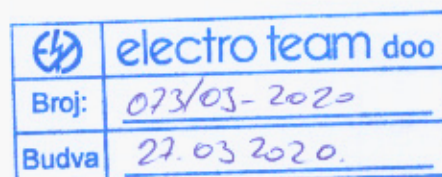 electro team doo
Broj: 073/03-2020
Budva 27.03 2020.